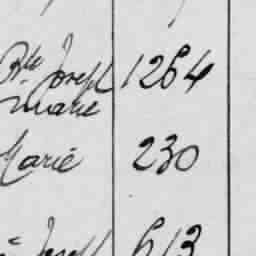 Rte Joseph 1264
Marie
Marie 230
Joseph 613